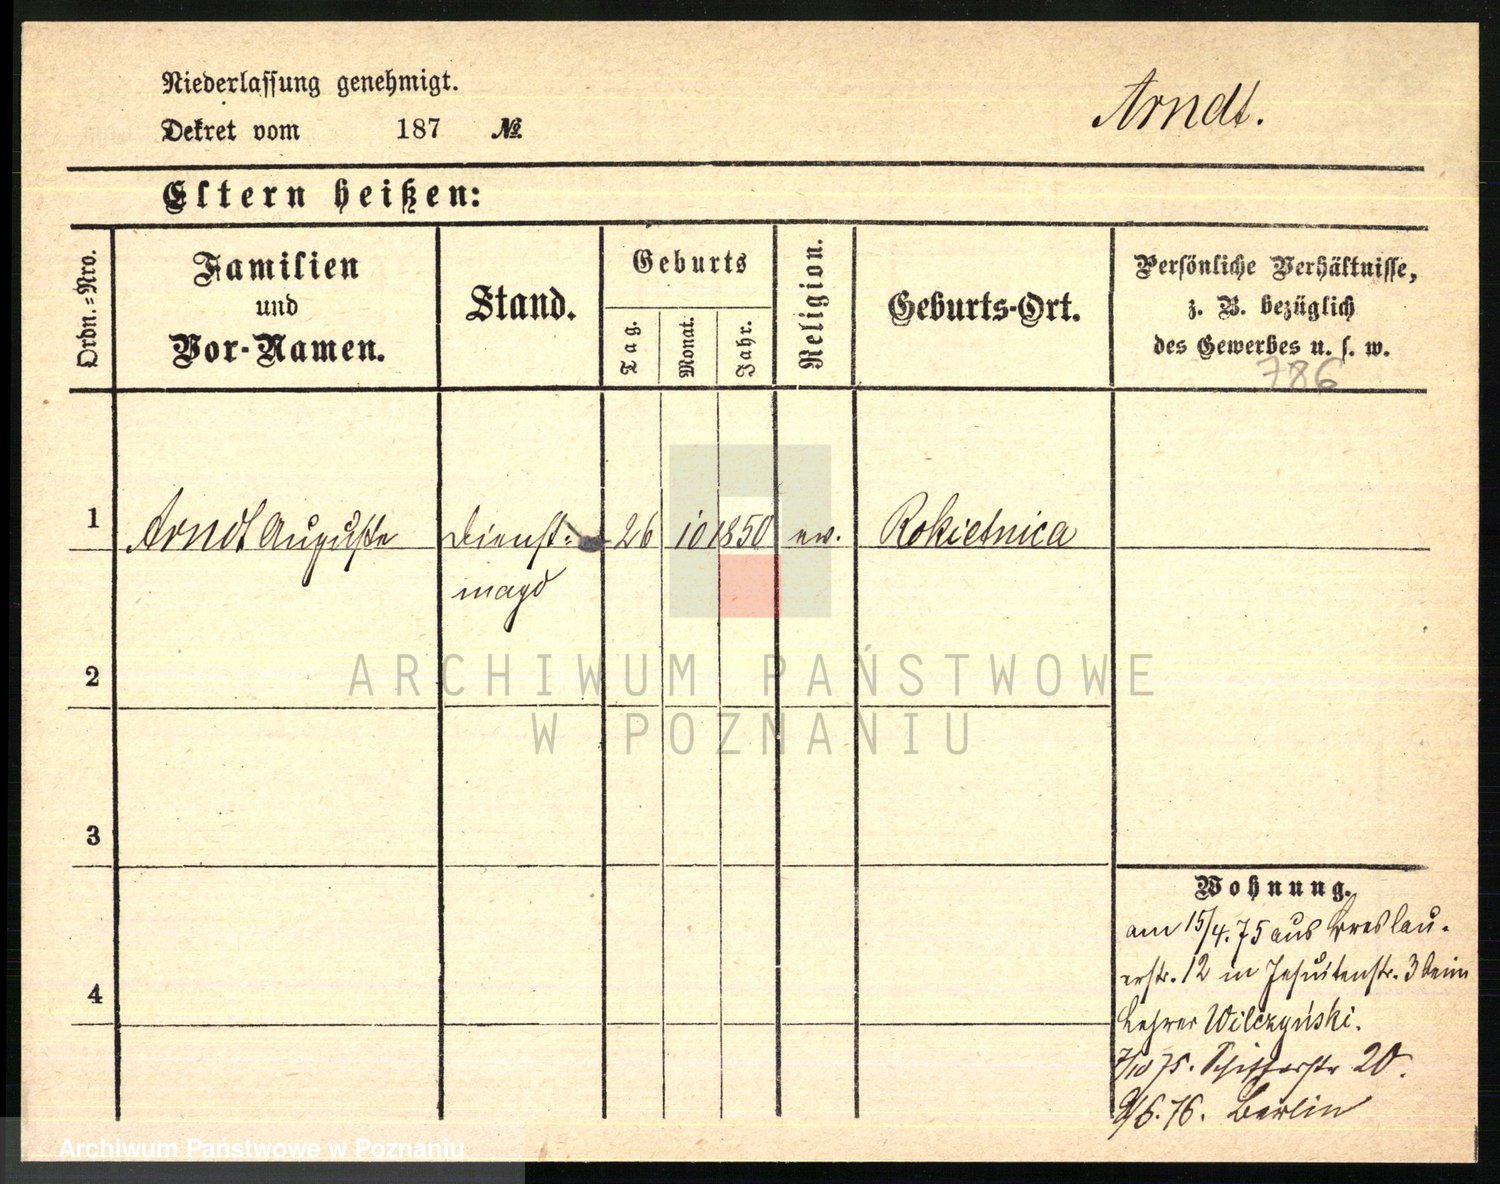 Niederlassung genehmigt.
Dekret vom 187 №
Arndt.
Eltern heißen:
Ordn.=Nro.
Familien
und
Vor-Namen.
Stand.
Geburts
Tag.
Monat.
Jahr.
Religion.
Geburts-Ort.
Persönliche Verhältnisse,
z. B. bezüglich
des Gewerbes u. s. w.
786
1 Arndt Auguste Dienst= 26 10 1850 ev. Rokietnica
magd
2
3
4
Wohnung.
am 15/4.75 aus Breslau-
erstr. 12 in Jesuitenstr. 3 beim
Lehrer Wilczyński.
7/10 75. Schifferstr 20.
9/6.76. Berlin
ARCHIWUM PAŃSTWOWE
W POZNANIU
Archiwum Państwowe w Poznaniu